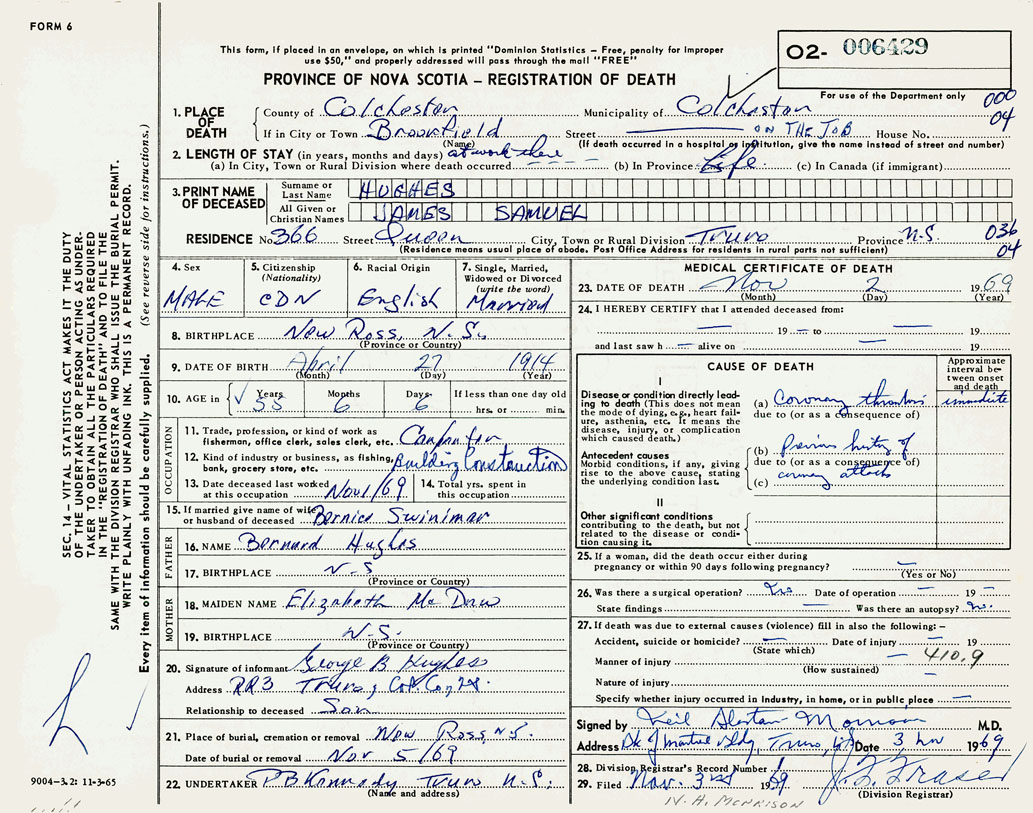 FORM 6
This form, if placed in an envelope, on which is printed "Dominion Statistics – Free, penalty for improper
use $50," and properly addressed will pass through the mail "FREE"
O2- 006429
For use of the Department only
PROVINCE OF NOVA SCOTIA – REGISTRATION OF DEATH
000
04
1. PLACE OF DEATH
County of Colchester Municipality of Colchester
If in City or Town Brookfield Street ON THE JOB House No.
(Name) (If death occurred in a hospital or institution, give the name instead of street and number)
2. LENGTH OF STAY (in years, months and days) at work there
(a) In City, Town or Rural Division where death occurred (b) In Province Life (c) In Canada (if immigrant)
3. PRINT NAME OF DECEASED
Surname or Last Name HUGHES
All Given or Christian Names JAMES SAMUEL
RESIDENCE No. 366 Street Queen City, Town or Rural Division Truro Province N.S.
(Residence means usual place of abode. Post Office Address for residents in rural parts not sufficient)
036
04
4. Sex MALE
5. Citizenship (Nationality) CDN
6. Racial Origin English
7. Single, Married, Widowed or Divorced (write the word) Married
8. BIRTHPLACE New Ross, N.S.
(Province or Country)
9. DATE OF BIRTH April 27 1914
(Month) (Day) (Year)
10. AGE in Years 55 Months 6 Days 6 If less than one day old hrs. or min.
OCCUPATION
11. Trade, profession, or kind of work as
fisherman, office clerk, sales clerk, etc. Carpenter
12. Kind of industry or business, as fishing,
bank, grocery store, etc. Building Construction
13. Date deceased last worked
at this occupation Nov 1/69
14. Total yrs. spent in
this occupation
15. If married give name of wife
or husband of deceased Bernice Swinimar
FATHER
16. NAME Bernard Hughes
17. BIRTHPLACE N-S
(Province or Country)
MOTHER
18. MAIDEN NAME Elizabeth
19. BIRTHPLACE N-S.
(Province or Country)
20. Signature of informant George B Hughes
Address RR3 Truro, Col. Co, N.S.
Relationship to deceased Son
21. Place of burial, cremation or removal New Ross, N.S.
Date of burial or removal Nov 5/69
22. UNDERTAKER Truro N.S.
(Name and address)
MEDICAL CERTIFICATE OF DEATH
23. DATE OF DEATH Nov 2 1969
(Month) (Day) (Year)
24. I HEREBY CERTIFY that I attended deceased from:
— 19 — to — 19
and last saw h — alive on — 19
CAUSE OF DEATH
Approximate interval between onset and death
I
Disease or condition directly leading to death (This does not mean the mode of dying, e.g., heart failure, asthenia, etc. It means the disease, injury, or complication which caused death.)
(a) Coronary thrombosis immediate
due to (or as a consequence of)
Antecedent causes
Morbid conditions, if any, giving rise to the above cause, stating the underlying condition last.
(b) Previous history of
due to (or as a consequence of)
(c) coronary attacks
II
Other significant conditions
contributing to the death, but not related to the disease or condition causing it.
25. If a woman, did the death occur either during
pregnancy or within 90 days following pregnancy? —
(Yes or No)
26. Was there a surgical operation? No Date of operation — 19 —
State findings — Was there an autopsy? No.
27. If death was due to external causes (violence) fill in also the following: –
Accident, suicide or homicide? — Date of injury — 19
(State which)
Manner of injury — 410.9
(How sustained)
Nature of injury —
Specify whether injury occurred in Industry, in home, or in public place —
Signed by Neil Alastair M.D.
Address Bldg, Truro, Date 3 Nov 1969
28. Division Registrar's Record Number
29. Filed Nov. 3rd 1969 Fraser
(Division Registrar)
N. H. MORRISON
SEC. 14 – VITAL STATISTICS ACT MAKES IT THE DUTY
OF THE UNDERTAKER OR PERSON ACTING AS UNDER-
TAKER TO OBTAIN ALL THE PARTICULARS REQUIRED
IN THE "REGISTRATION OF DEATH" AND TO FILE THE
SAME WITH THE DIVISION REGISTRAR WHO SHALL ISSUE THE BURIAL PERMIT.
WRITE PLAINLY WITH UNFADING INK. THIS IS A PERMANENT RECORD.
Every item of information should be carefully supplied. (See reverse side for instructions.)
9004–3.2: 11-3-65